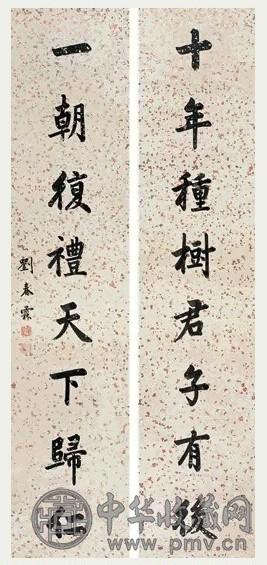 十年種樹君子有後
一朝復禮天下歸仁
劉春霖
中华收藏网
www.pmv.cn